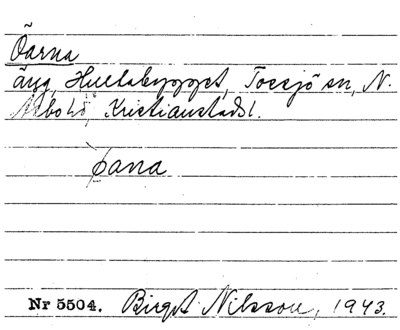 Öarna
äng, Hultabygget, Tossjö sn, N.
Åsbo hd, Kristianstads l.
òana
Nr 5504. Birgit Nilsson, 1943.